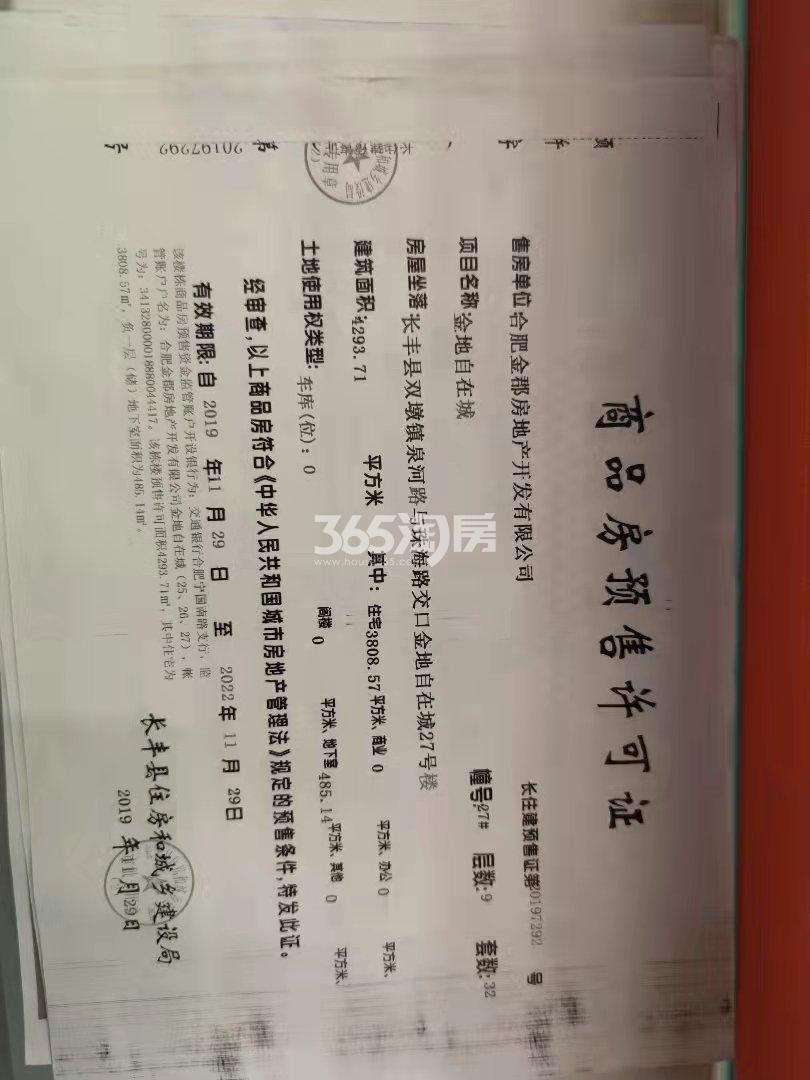 商品房预售许可证
长住建预售证第20197292 号
售房单位:合肥金郡房地产开发有限公司
项目名称:金地自在城 幢号:27# 层数:9 套数:32
房屋坐落:长丰县双墩镇泉河路与珠海路交口金地自在城27号楼
建筑面积:4293.71 平方米 其中: 住宅3808.57平方米、商业 0 平方米、办公 0 平方米、
阁楼 0 平方米、地下室 485.14 平方米、其他 0 平方米、
土地使用权类型: 车库(位): 0
经审查,以上商品房符合《中华人民共和国城市房地产管理法》规定的预售条件,特发此证。
有效期限:自 2019 年11 月 29 日 至 2022年 11 月 29日
该楼栋商品房预售资金监管账户开设银行为: 交通银行合肥宁国南路支行, 监
管账户户名为: 合肥金郡房地产开发有限公司金地自在城(25、26、27), 帐
号为: 341328000018880044417。该栋楼预售许可面积4293.71㎡, 其中住宅为
3808.57㎡, 负一层(储)地下室面积为485.14㎡。
长丰县住房和城乡建设局
2019 年11月29日
第 20197292 字
专用章
(2)
365淘房